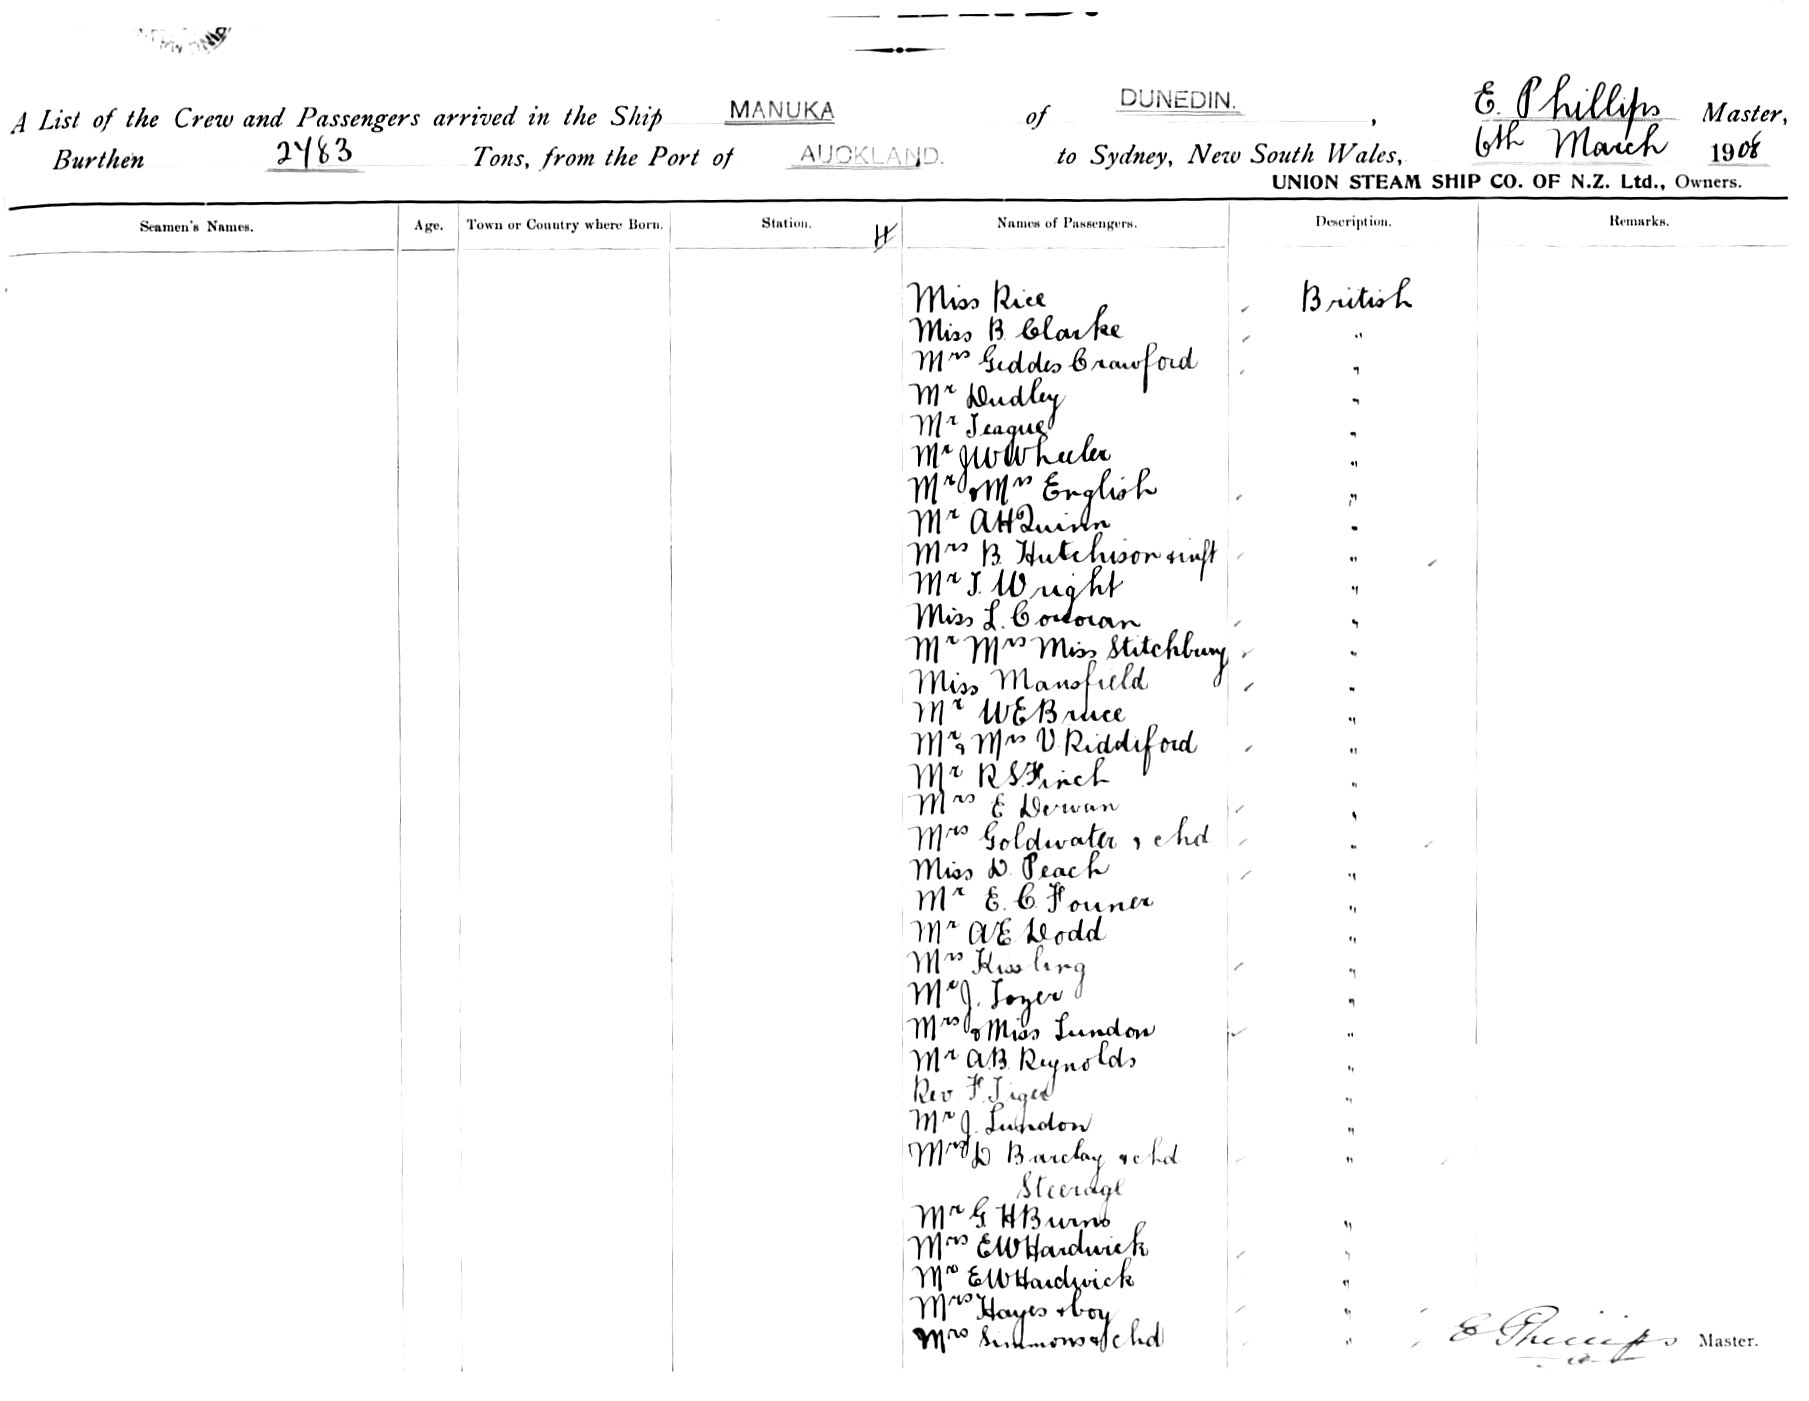 A List of the Crew and Passengers arrived in the Ship MANUKA of DUNEDIN. , E. Phillips Master,
Burthen 2483 Tons, from the Port of AUCKLAND. to Sydney, New South Wales, 6th March 1908
UNION STEAM SHIP CO. OF N.Z. Ltd., Owners.
Seamen's Names. Age. Town or Country where Born. Station. Names of Passengers. Description. Remarks.
Miss Rice British
Miss B. Clarke "
Mrs Geddes Crawford "
Mr Dudley "
Mr Teague "
Mr J W Wheeler "
Mr & Mrs English "
Mr A H Quinn "
Mrs B. Hutchison & inft "
Mr T. Wright "
Miss L. Corcoran "
Mr Mrs Miss Stitchbury "
Miss Mansfield "
Mr W E Bruce "
Mr & Mrs V. Riddiford "
Mr R S Finch "
Mrs E Derwan "
Mrs Goldwater & chd "
Miss D. Peach "
Mr E. C. "
Mr A E Dodd "
Mrs Kissling "
Mr J. Tozer "
Mrs & Miss Lundon "
Mr A.B. Reynolds "
Rev F. "
Mr J. Lundon "
Mrs D Barclay & chd "
Steerage
Mr G. H Burns "
Mrs E W Hardwick "
Mr E W Hardwick "
Mrs Hayes & boy "
Mrs Simmons & chd " E Phillips Master.